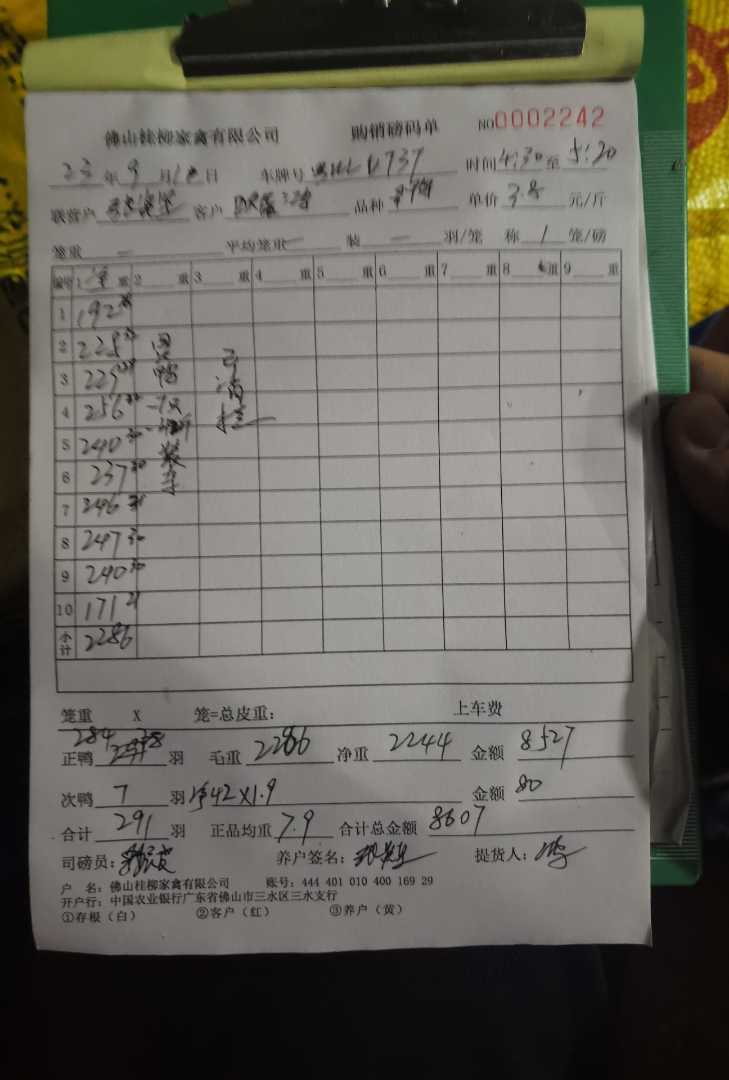 佛山桂柳家禽有限公司 购销磅码单 NO 0002242
23 年 9 月 日 车牌号 时间 4:30 至 5:20
联营户 客户 品种 单价 3.8 元/斤
笼重 — 平均笼重 — 装 — 羽/笼 称 1 笼/磅
编号 1 重 2 重 3 重 4 重 5 重 6 重 7 重 8 重 9 重
1 192
2 228
3 229
4 256 30 一7只
5 240 30
6 237 30 装车
7 246
8 247 30
9 240 30
10 171 21
小计 2286
笼重 X 笼=总皮重: 上车费
正鸭 284 羽 毛重 2286 净重 2244 金额 8527
次鸭 7 羽 净42X1.9 金额 80
合计 291 羽 正品均重 7.9 合计总金额 8607
司磅员: 养户签名: 提货人:
户 名: 佛山桂柳家禽有限公司 账号: 444 401 010 400 169 29
开户行: 中国农业银行广东省佛山市三水区三水支行
①存根(白) ②客户(红) ③养户(黄)